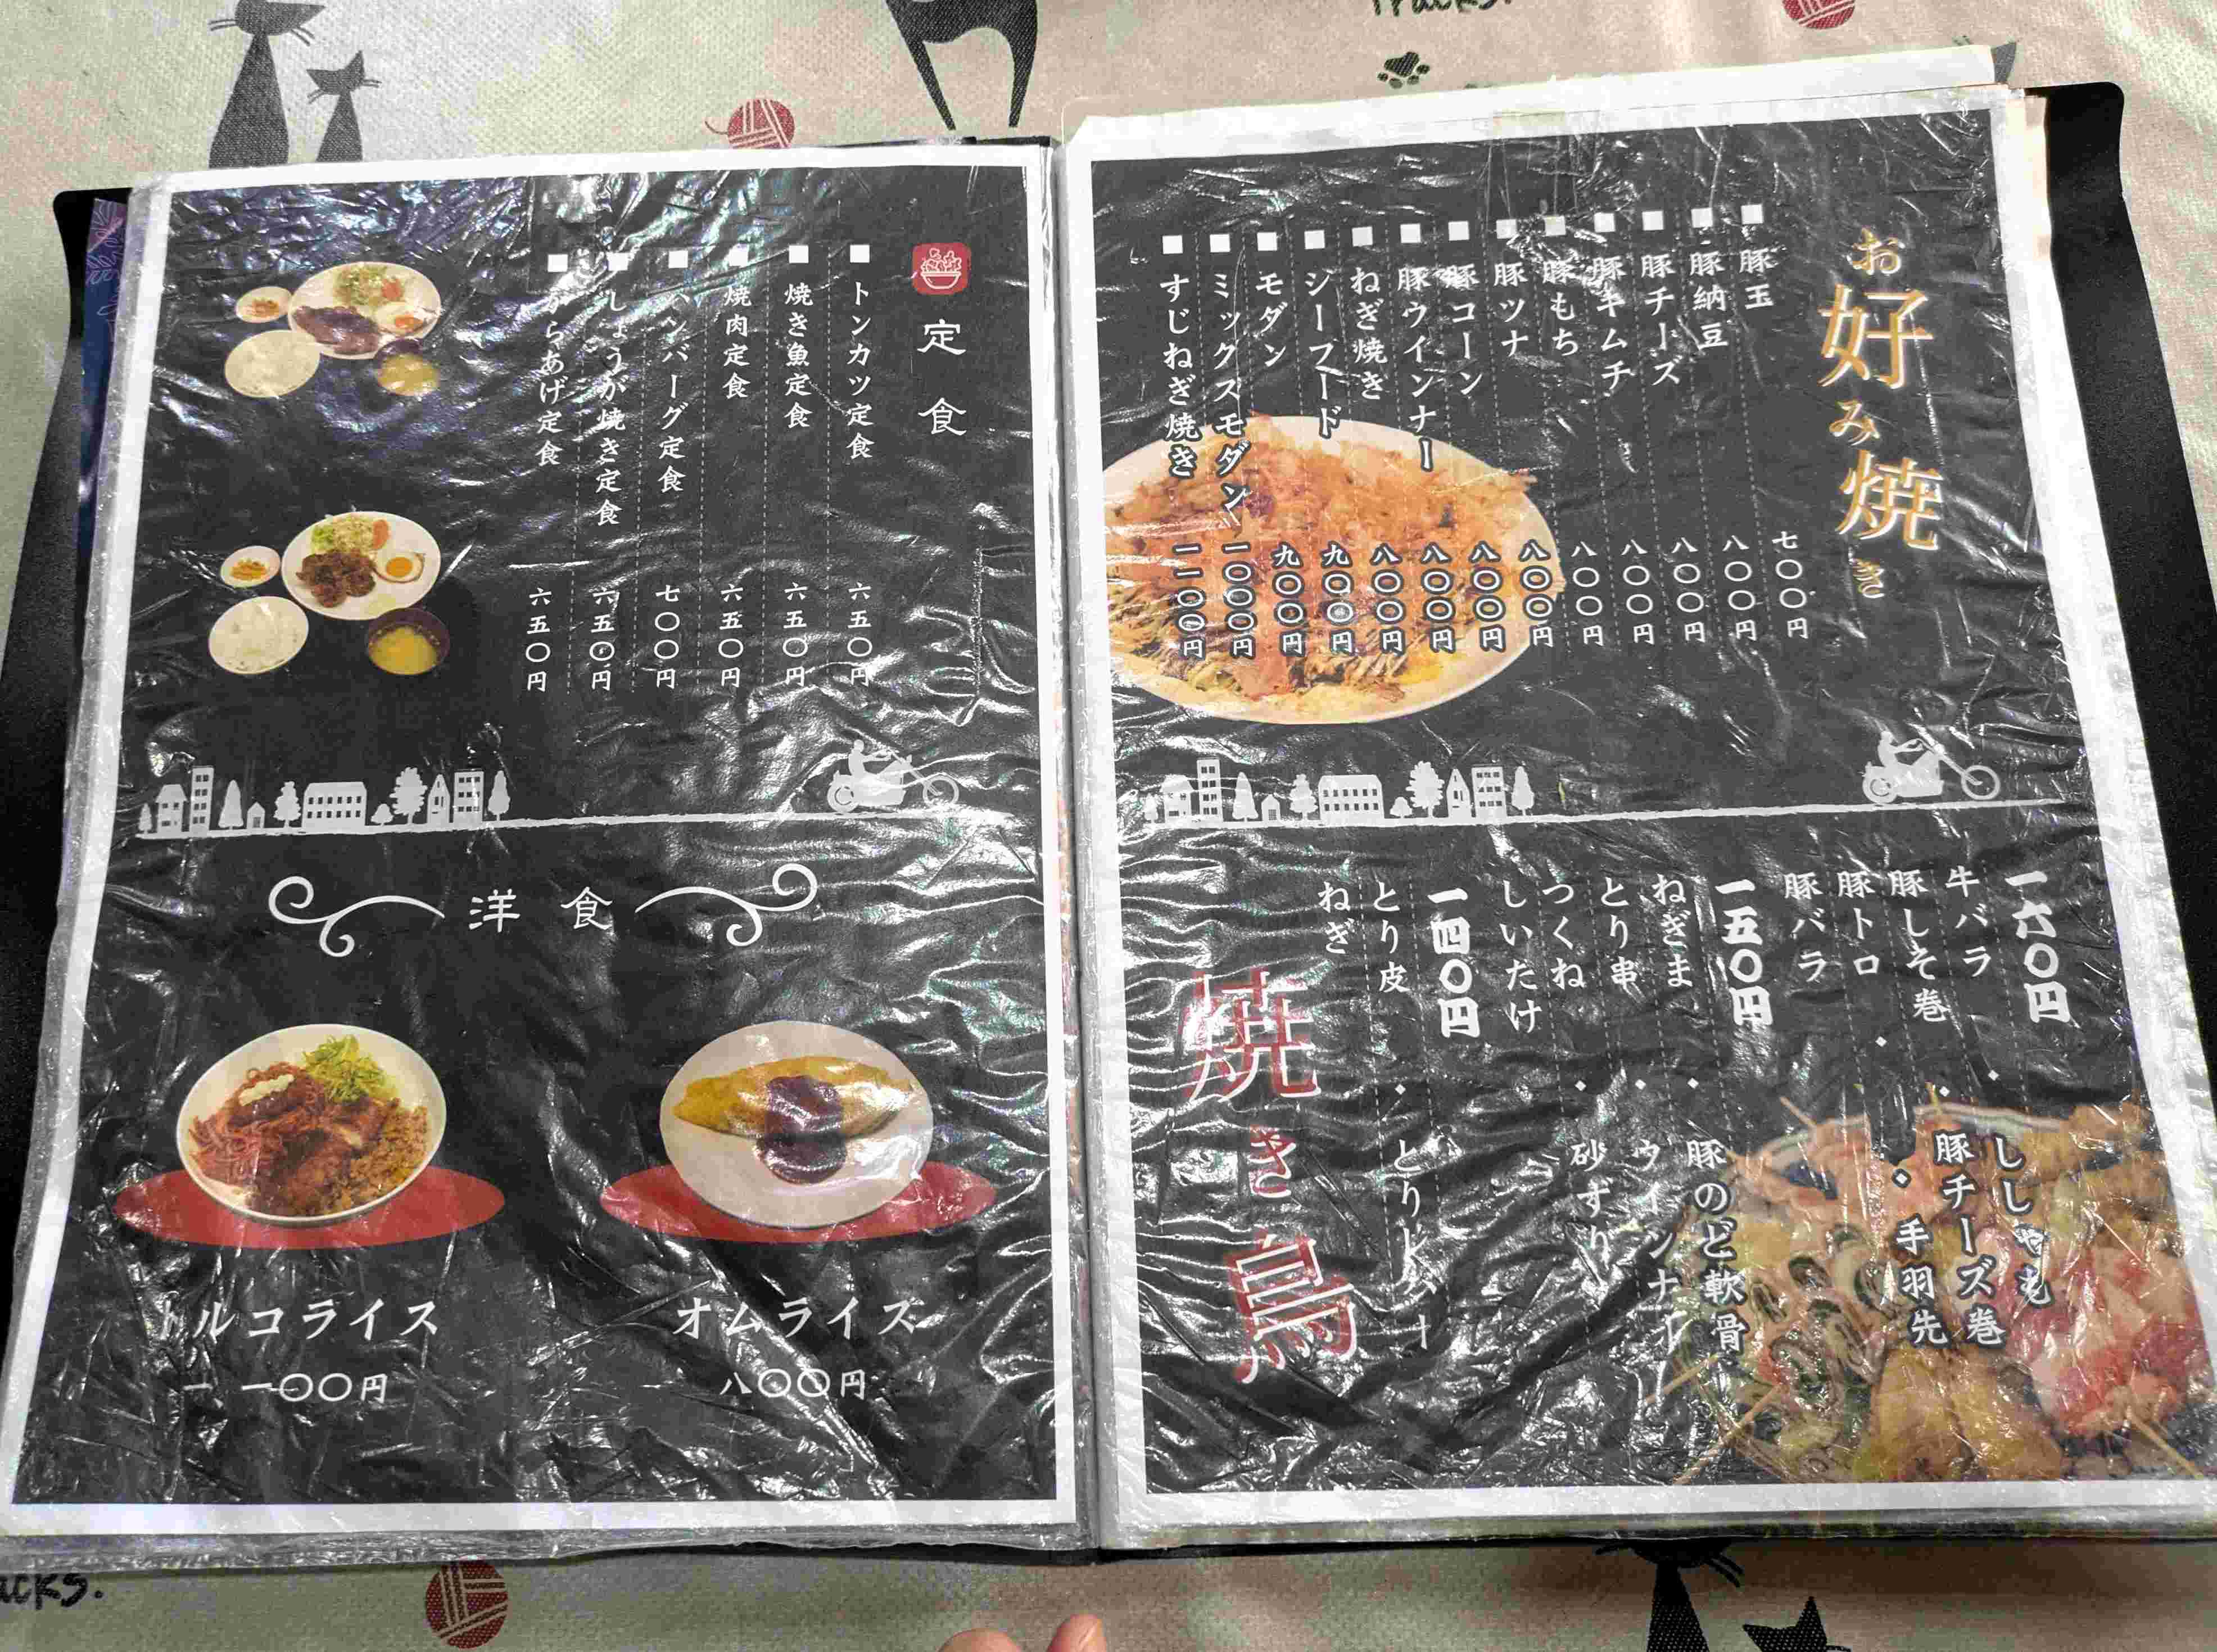 Tracks.
お好み焼き
豚玉 七〇〇円
豚納豆 八〇〇円
豚チーズ 八〇〇円
豚キムチ 八〇〇円
豚もち 八〇〇円
豚ツナ 八〇〇円
豚コーン 八〇〇円
豚ウインナー 八〇〇円
ねぎ焼き 八〇〇円
シーフード 九〇〇円
モダン 九〇〇円
ミックスモダン 一〇〇〇円
すじねぎ焼き 一一〇〇円
一六〇円
牛バラ・ししゃも
豚しそ巻・豚チーズ巻
豚トロ・手羽先
豚バラ
一五〇円
ねぎま・豚のど軟骨
とり串・ウインナー
つくね・砂ずり
しいたけ
一四〇円
とり皮・とりトマト
ねぎ
焼き鳥
定食
トンカツ定食 六五〇円
焼き魚定食 六五〇円
焼肉定食 六五〇円
ハンバーグ定食 七〇〇円
しょうが焼き定食 六五〇円
からあげ定食 六五〇円
洋食
トルコライス
一一〇〇円
オムライス
八〇〇円
acks.